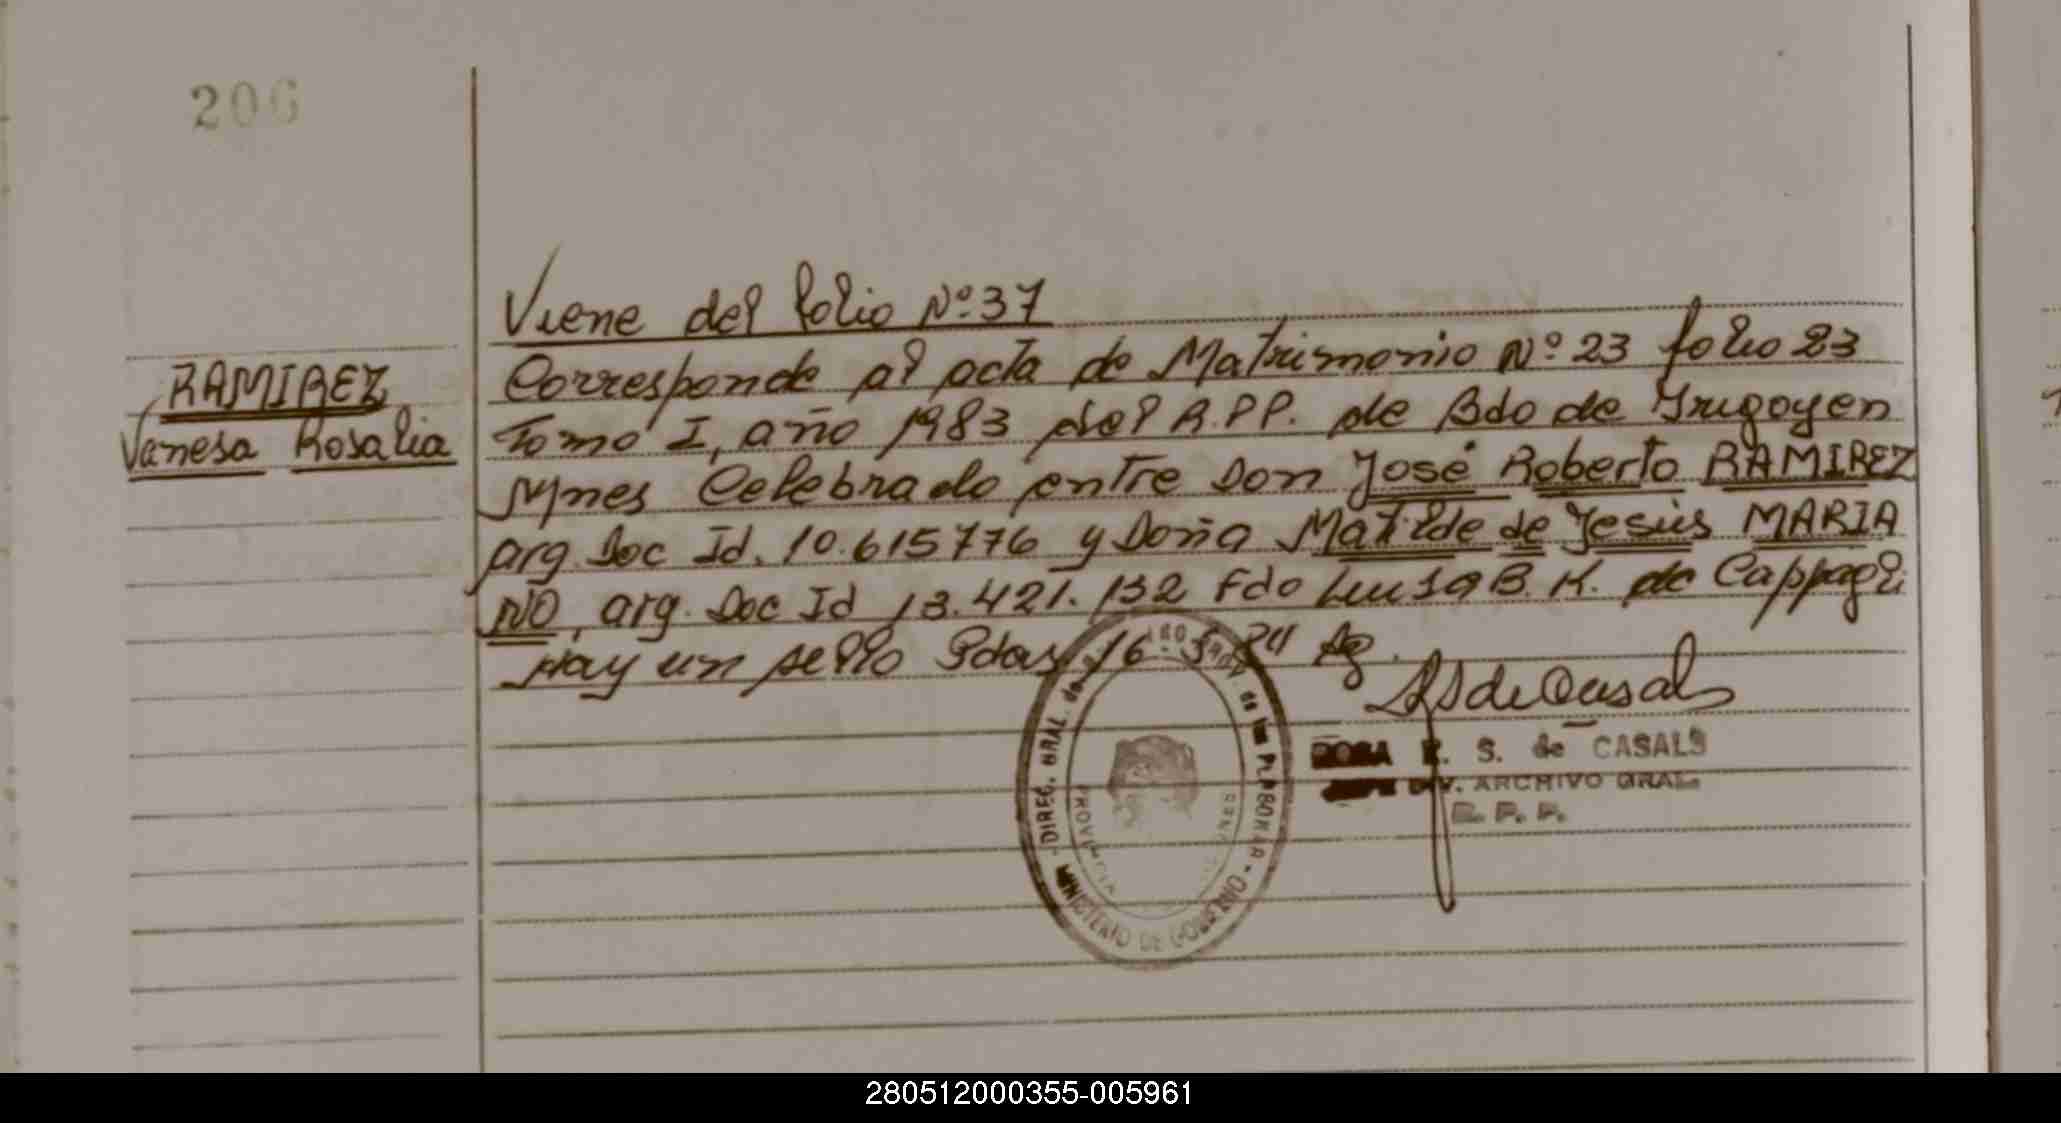 206
Viene del folio Nº 37
RAMIREZ
Vanesa Rosalia
Corresponde al acta de Matrimonio Nº 23 folio 23
Tomo I, año 1983 del R.P.P. de Bdo de Irigoyen
Mnes Celebrado entre Don José Roberto RAMIREZ
arg. Doc Id. 10.615776 y Doña Matilde de Jesús MARIA
NO, arg. Doc Id 13.421.132 Fdo Luisa B. K. de Cappagli
Hay un sello Pdas, 16-5-84
RS de Casals
ROSA E. S. de CASALS
DIV. ARCHIVO GRAL.
R. P. P.
DIREC. GRAL. de las
MINISTERIO DE GOBIERNO
PROVINCIA
280512000355-005961